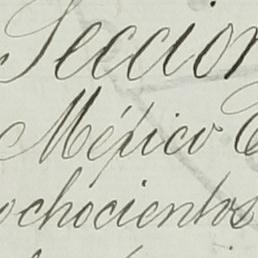 Seccion
México
ochocientos